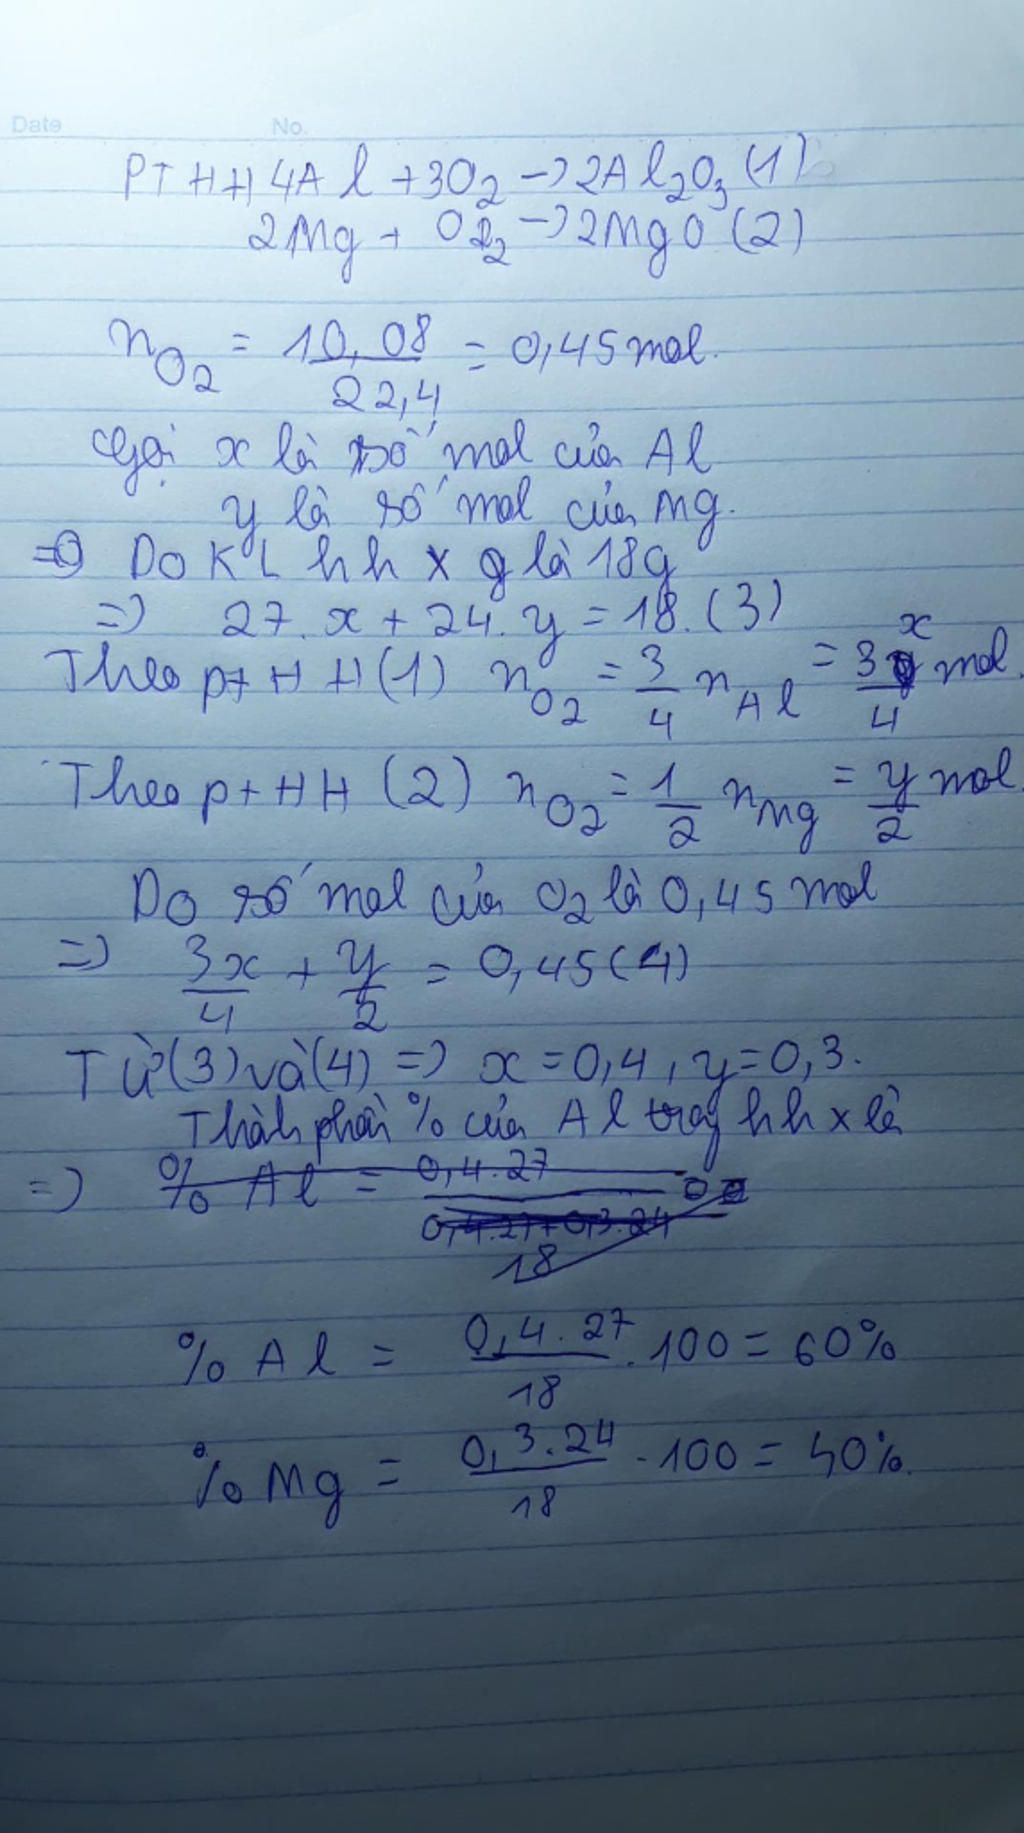 Date No.
PTHH 4Al + 3O2 -> 2Al2O3 (1)
2Mg + O2 -> 2MgO (2)
nO2 = 10,08/22,4 = 0,45 mol.
Gọi x là số mol của Al
y là số mol của Mg.
=> Do KL hh x g là 18g
=> 27.x + 24.y = 18. (3)
Theo ptHH (1) nO2 = 3/4 nAl = 3x/4 mol.
Theo ptHH (2) nO2 = 1/2 nMg = y/2 mol
Do số mol của O2 là 0,45 mol
=> 3x/4 + y/2 = 0,45 (4)
Từ (3) và (4) => x = 0,4, y = 0,3.
Thành phần % của Al trog hh x là
=> % Al = 0,4.27/18
% Al = 0,4.27/18 .100 = 60%
% Mg = 0,3.24/18 .100 = 40%.